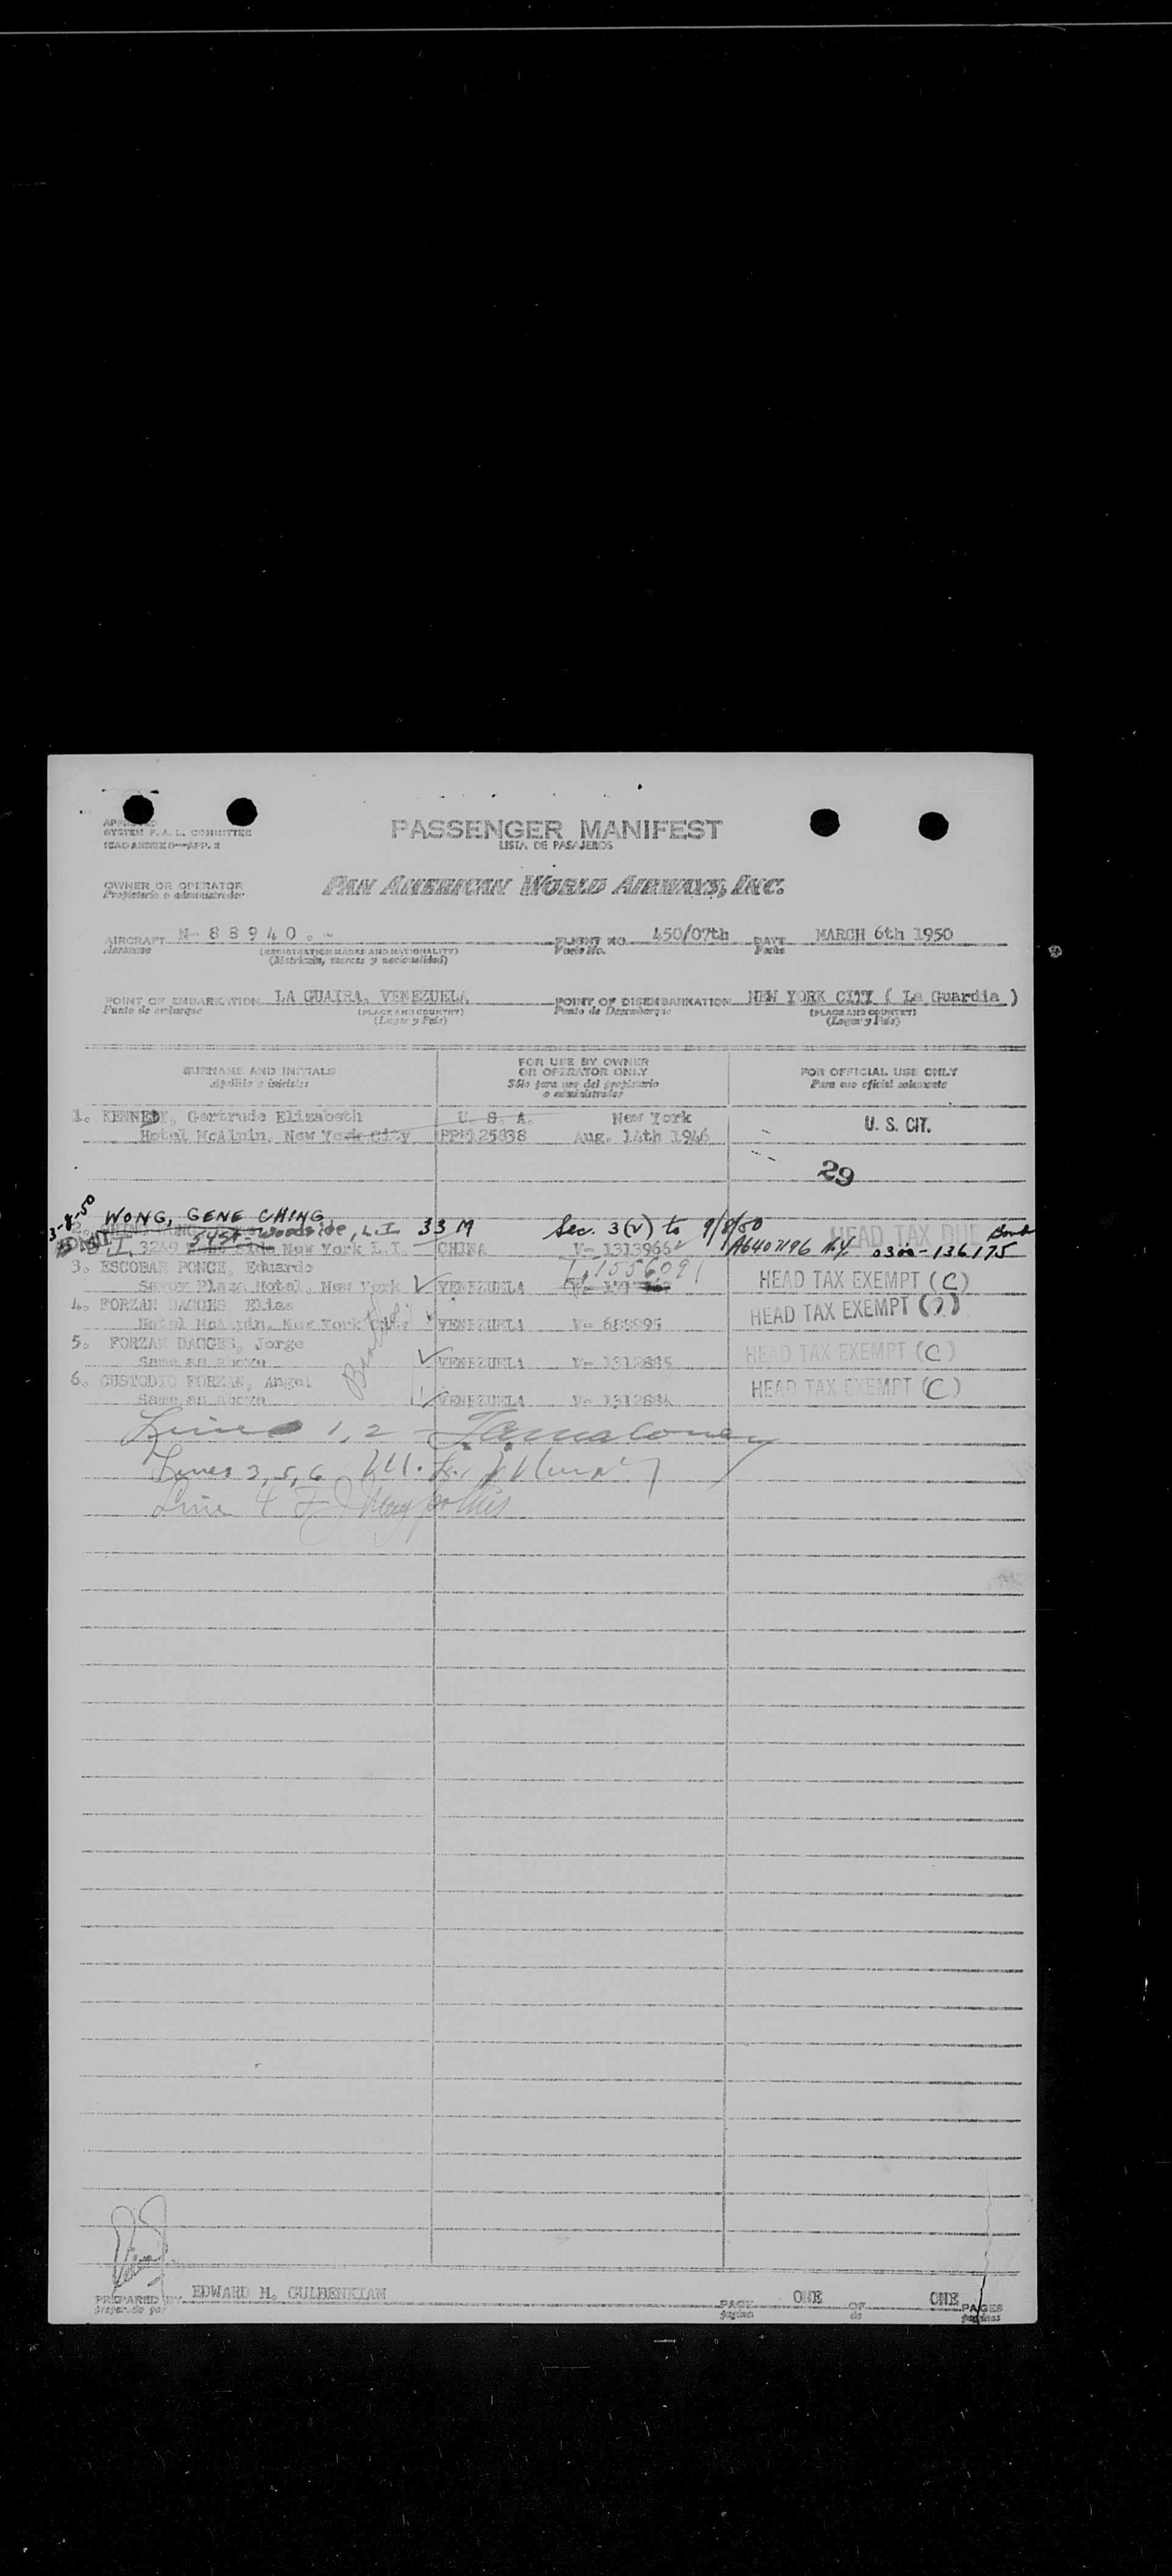 APPROVED
SYSTEM F. A. L. COMMITTEE
ICAO ANNEX 9—APP. 2
PASSENGER MANIFEST
LISTA DE PASAJEROS
OWNER OR OPERATOR
Propietario o administrador
PAN AMERICAN WORLD AIRWAYS, INC.
AIRCRAFT N- 8 8 9 4 0 . - FLIGHT NO. 450/07th DATE MARCH 6th 1950
Aeronave (REGISTRATION MARKS AND NATIONALITY) Vuelo No. Fecha
(Matrícula, marcas y nacionalidad)
POINT OF EMBARKATION LA GUAIRA, VENEZUELA POINT OF DISEMBARKATION NEW YORK CITY ( La Guardia )
Punto de embarque (PLACE AND COUNTRY) Punto de Desembarque (PLACE AND COUNTRY)
(Lugar y País) (Lugar y País)
SURNAME AND INITIALS FOR USE BY OWNER OR OPERATOR ONLY FOR OFFICIAL USE ONLY
Apellido e iniciales Sólo para uso del propietario o administrador Para uso oficial solamente
1. KENNEDY, Gertrude Elizabeth U. S. A. New York
Hotel McAlpin, New York City PP#125838 Aug. 14th 1946 U. S. CIT.
29
3-8-50 WONG, GENE CHING
2. 5454 Woodside, L.I. 33 M Sec. 3(2) to 9/8/50 HEAD TAX DUE Bond
ADMIT 3249 New York L.I. CHINA V- 1313966 A6407196 N.Y. 0300-136175
3. ESCOBAR PONCE, Eduardo T, 1556091
Savoy Plaza Hotel, New York VENEZUELA HEAD TAX EXEMPT (C)
4. FORZAN DAGGES, Elias
Hotel McAlpin, New York City VENEZUELA V- 688995 HEAD TAX EXEMPT
5. FORZAN DAGGES, Jorge
Same as above VENEZUELA V- 1312885 HEAD TAX EXEMPT (C)
6. CUSTODIO FORZAN, Angel
Same as above VENEZUELA V- 1312884 HEAD TAX EXEMPT (C)
Lines 1, 2
Lines 3, 5, 6
Line 4
PREPARED BY EDWARD M. GULBENKIAN PAGE ONE OF ONE PAGES
Preparado por página de páginas